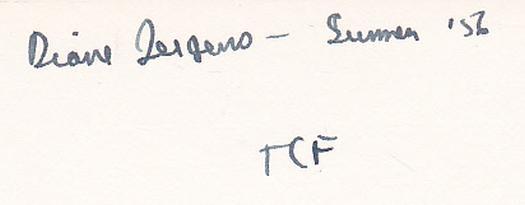 Diane Jergens — Summer '56
TCF